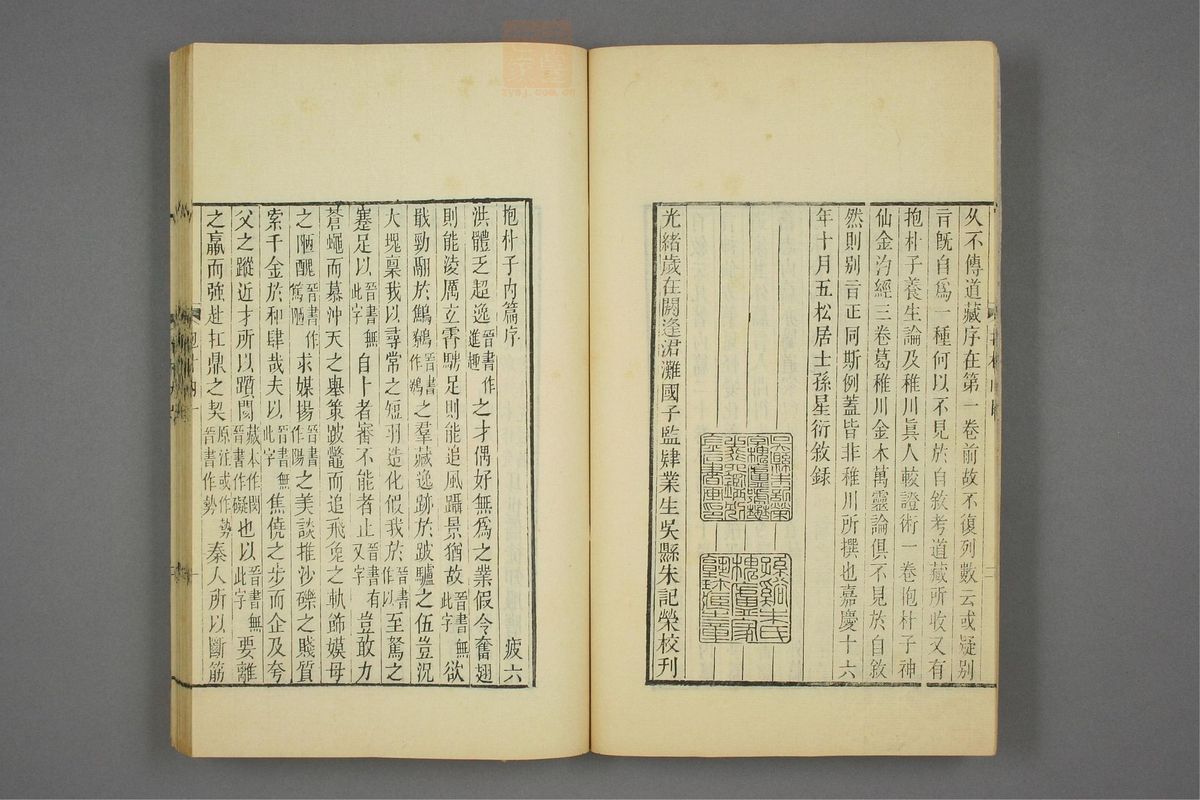 久不傳道藏序在第一卷前故不復列數云或疑別
言旣自爲一種何以不見於自敘考道藏所收又有
抱朴子養生論及稚川眞人較證術一卷抱朴子神
仙金汋經三卷葛稚川金木萬靈論俱不見於自敘
然則別言正同斯例蓋皆非稚川所撰也嘉慶十六
年十月五松居士孫星衍敘錄
光緒歲在閼逢涒灘國子監肄業生吳縣朱記榮校刊
抱朴子內篇序 疲六
洪體乏超逸晉書作進趣之才偶好無爲之業假令奮翅
則能淩厲立霄騁足則能追風躡景猶故晉書無此字欲
戢勁翮於鷦鷃晉書作鷃之羣藏逸跡於跛驢之伍豈況
大塊稟我以尋常之短羽造化假我於晉書作以至駑之
蹇足以晉書無此字自卜者審不能者止晉書有又字豈敢力
蒼蠅而慕沖天之舉策跛鼈而追飛兔之軌飾嫫母
之陋醜晉書作篤陋求媒揚晉書作陽之美談推沙礫之賤質
索千金於和肆哉夫以晉書無此字焦僥之步而企及夸
父之蹤近才所以躓閡藏本作閡晉書作礙也以晉書無此字要離
之羸而強赴扛鼎之契原注或作勢晉書作勢秦人所以斷筋